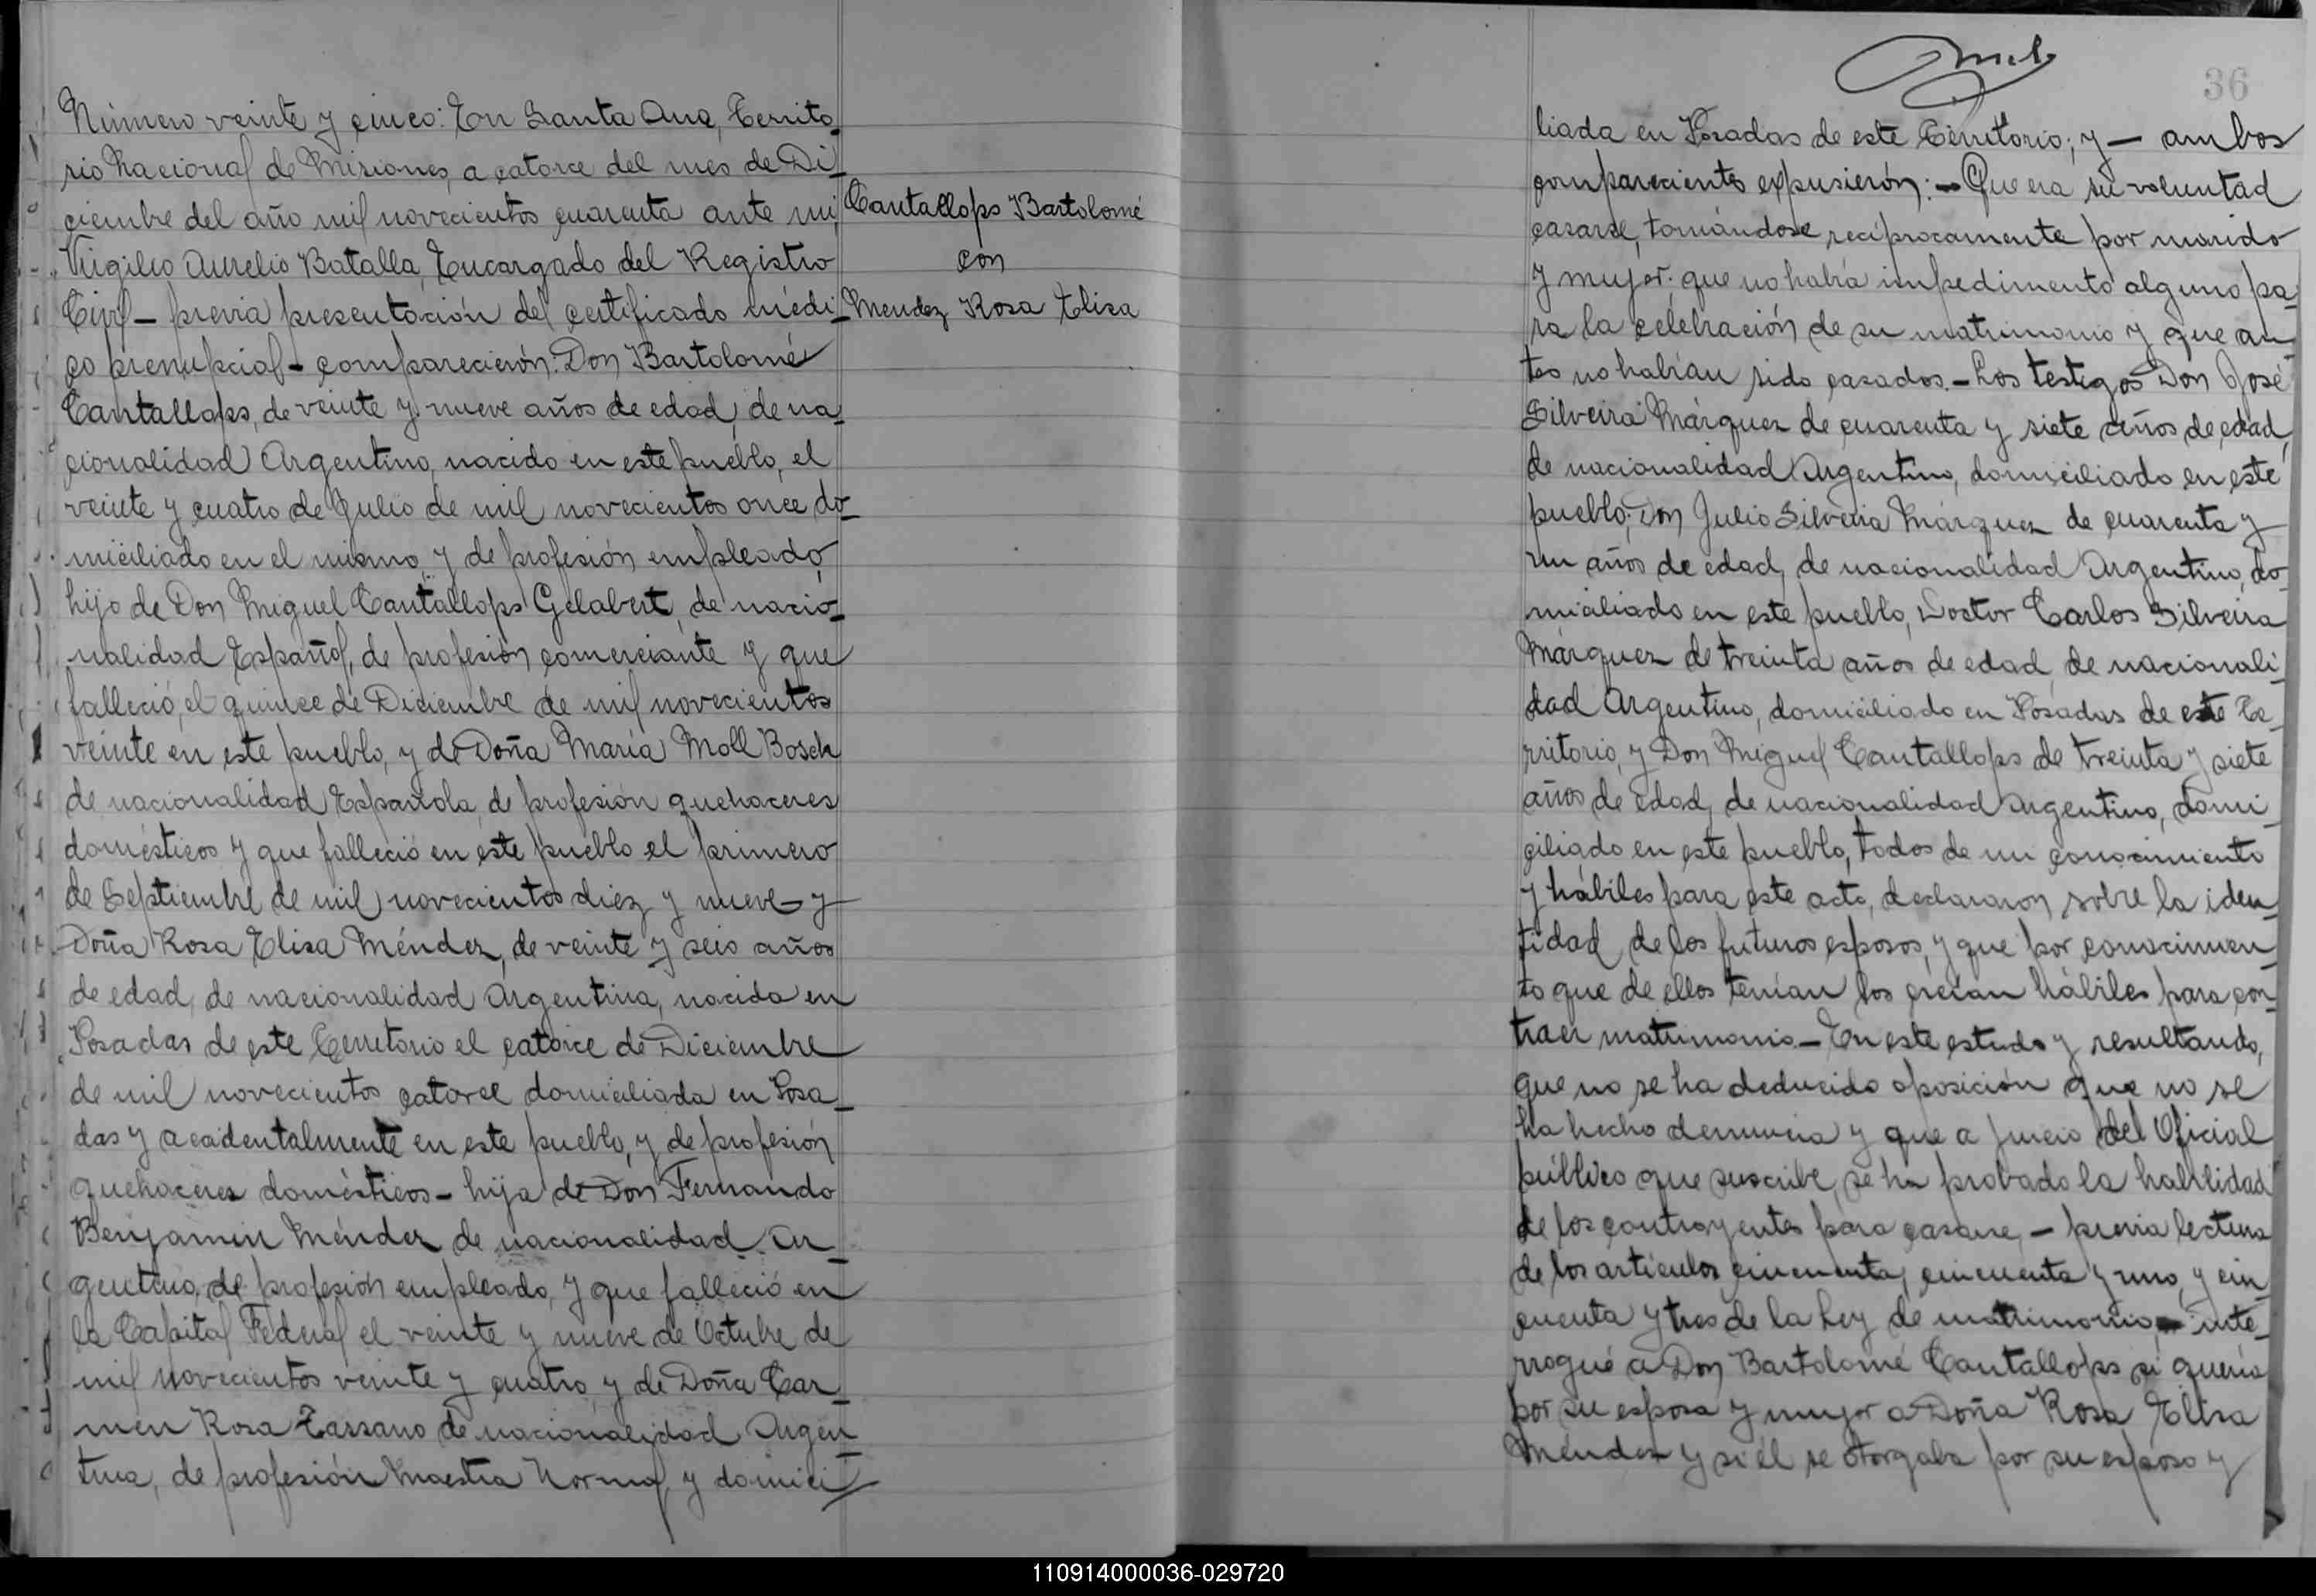 Número veinte y cinco: En Santa Ana, Territo_
rio Nacional de Misiones, a catorce del mes de Di_
ciembre del año mil novecientos cuarenta ante mi,
Virgilio Aurelio Batalla, Encargado del Registro
Civil — previa presentación del certificado médi_
co prenupcial — comparecieron: Don Bartolomé
Cantallops, de veinte y nueve años de edad, de na_
cionalidad Argentino, nacido en este pueblo, el
veinte y cuatro de Julio de mil novecientos once do_
miciliado en el mismo, y de profesión empleado,
hijo de Don Miguel Cantallops Gelabert, de nacio_
nalidad Español, de profesión comerciante y que
falleció, el quince de Diciembre de mil novecientos
veinte en este pueblo, y de Doña María Moll Bosch
de nacionalidad Española, de profesión quehaceres
domésticos y que falleció en este pueblo el primero
de Septiembre de mil novecientos diez y nueve — y
Doña Rosa Elisa Méndez, de veinte y seis años
de edad, de nacionalidad Argentina, nacida en
Posadas de este Territorio el catorce de Diciembre
de mil novecientos catorce domiciliada en Posa_
das y accidentalmente en este pueblo, y de profesión
quehaceres domésticos — hija de Don Fernando
Benjamin Méndez de nacionalidad Ar_
gentino, de profesión empleado, y que falleció en
la Capital Federal el veinte y nueve de Octubre de
mil novecientos veinte y cuatro y de Doña Car_
men Rosa Tassano de nacionalidad Argen_
tina, de profesión Maestra Normal, y domici_
Cantallops Bartolomé
con
Mendez Rosa Elisa
36
liada en Posadas de este Territorio; y — ambos
comparecientes expusierón: — Que era su voluntad
casarse, tomándose recíprocamente por marido
y mujer: que no había impedimento alguno pa_
ra la celebración de su matrimonio y que an_
tes no habían sido casados. — Los testigos Don José
Silveira Márquez de cuarenta y siete años de edad,
de nacionalidad Argentino, domiciliado en este
pueblo, Don Julio Silveira Márquez de cuarenta y
un años de edad, de nacionalidad Argentino, do_
miciliado en este pueblo, Doctor Carlos Silveira
Márquez de treinta años de edad, de nacionali_
dad Argentino, domiciliado en Posadas de este Te_
rritorio, y Don Miguel Cantallops de treinta y siete
años de edad, de nacionalidad Argentino, domi_
ciliado en este pueblo, todos de mi conocimiento
y hábiles para este acto, declararon sobre la iden_
tidad de los futuros esposos, y que por conocimien_
to que de ellos tenían los creían hábiles para con_
traer matrimonio. — En este estado y resultando,
que no se ha deducido oposición que no se
ha hecho denuncia y que a juicio del Oficial
público que suscribe, se ha probado la habilidad
de los contrayentes para casarse, — previa lectura
de los artículos cincuenta, cincuenta y uno, y cin_
cuenta y tres de la Ley de matrimonio — inte_
rrogué a Don Bartolomé Cantallops si quería
por su esposa y mujer a Doña Rosa Elisa
Méndez y si él se otorgaba por su esposo y
110914000036-029720